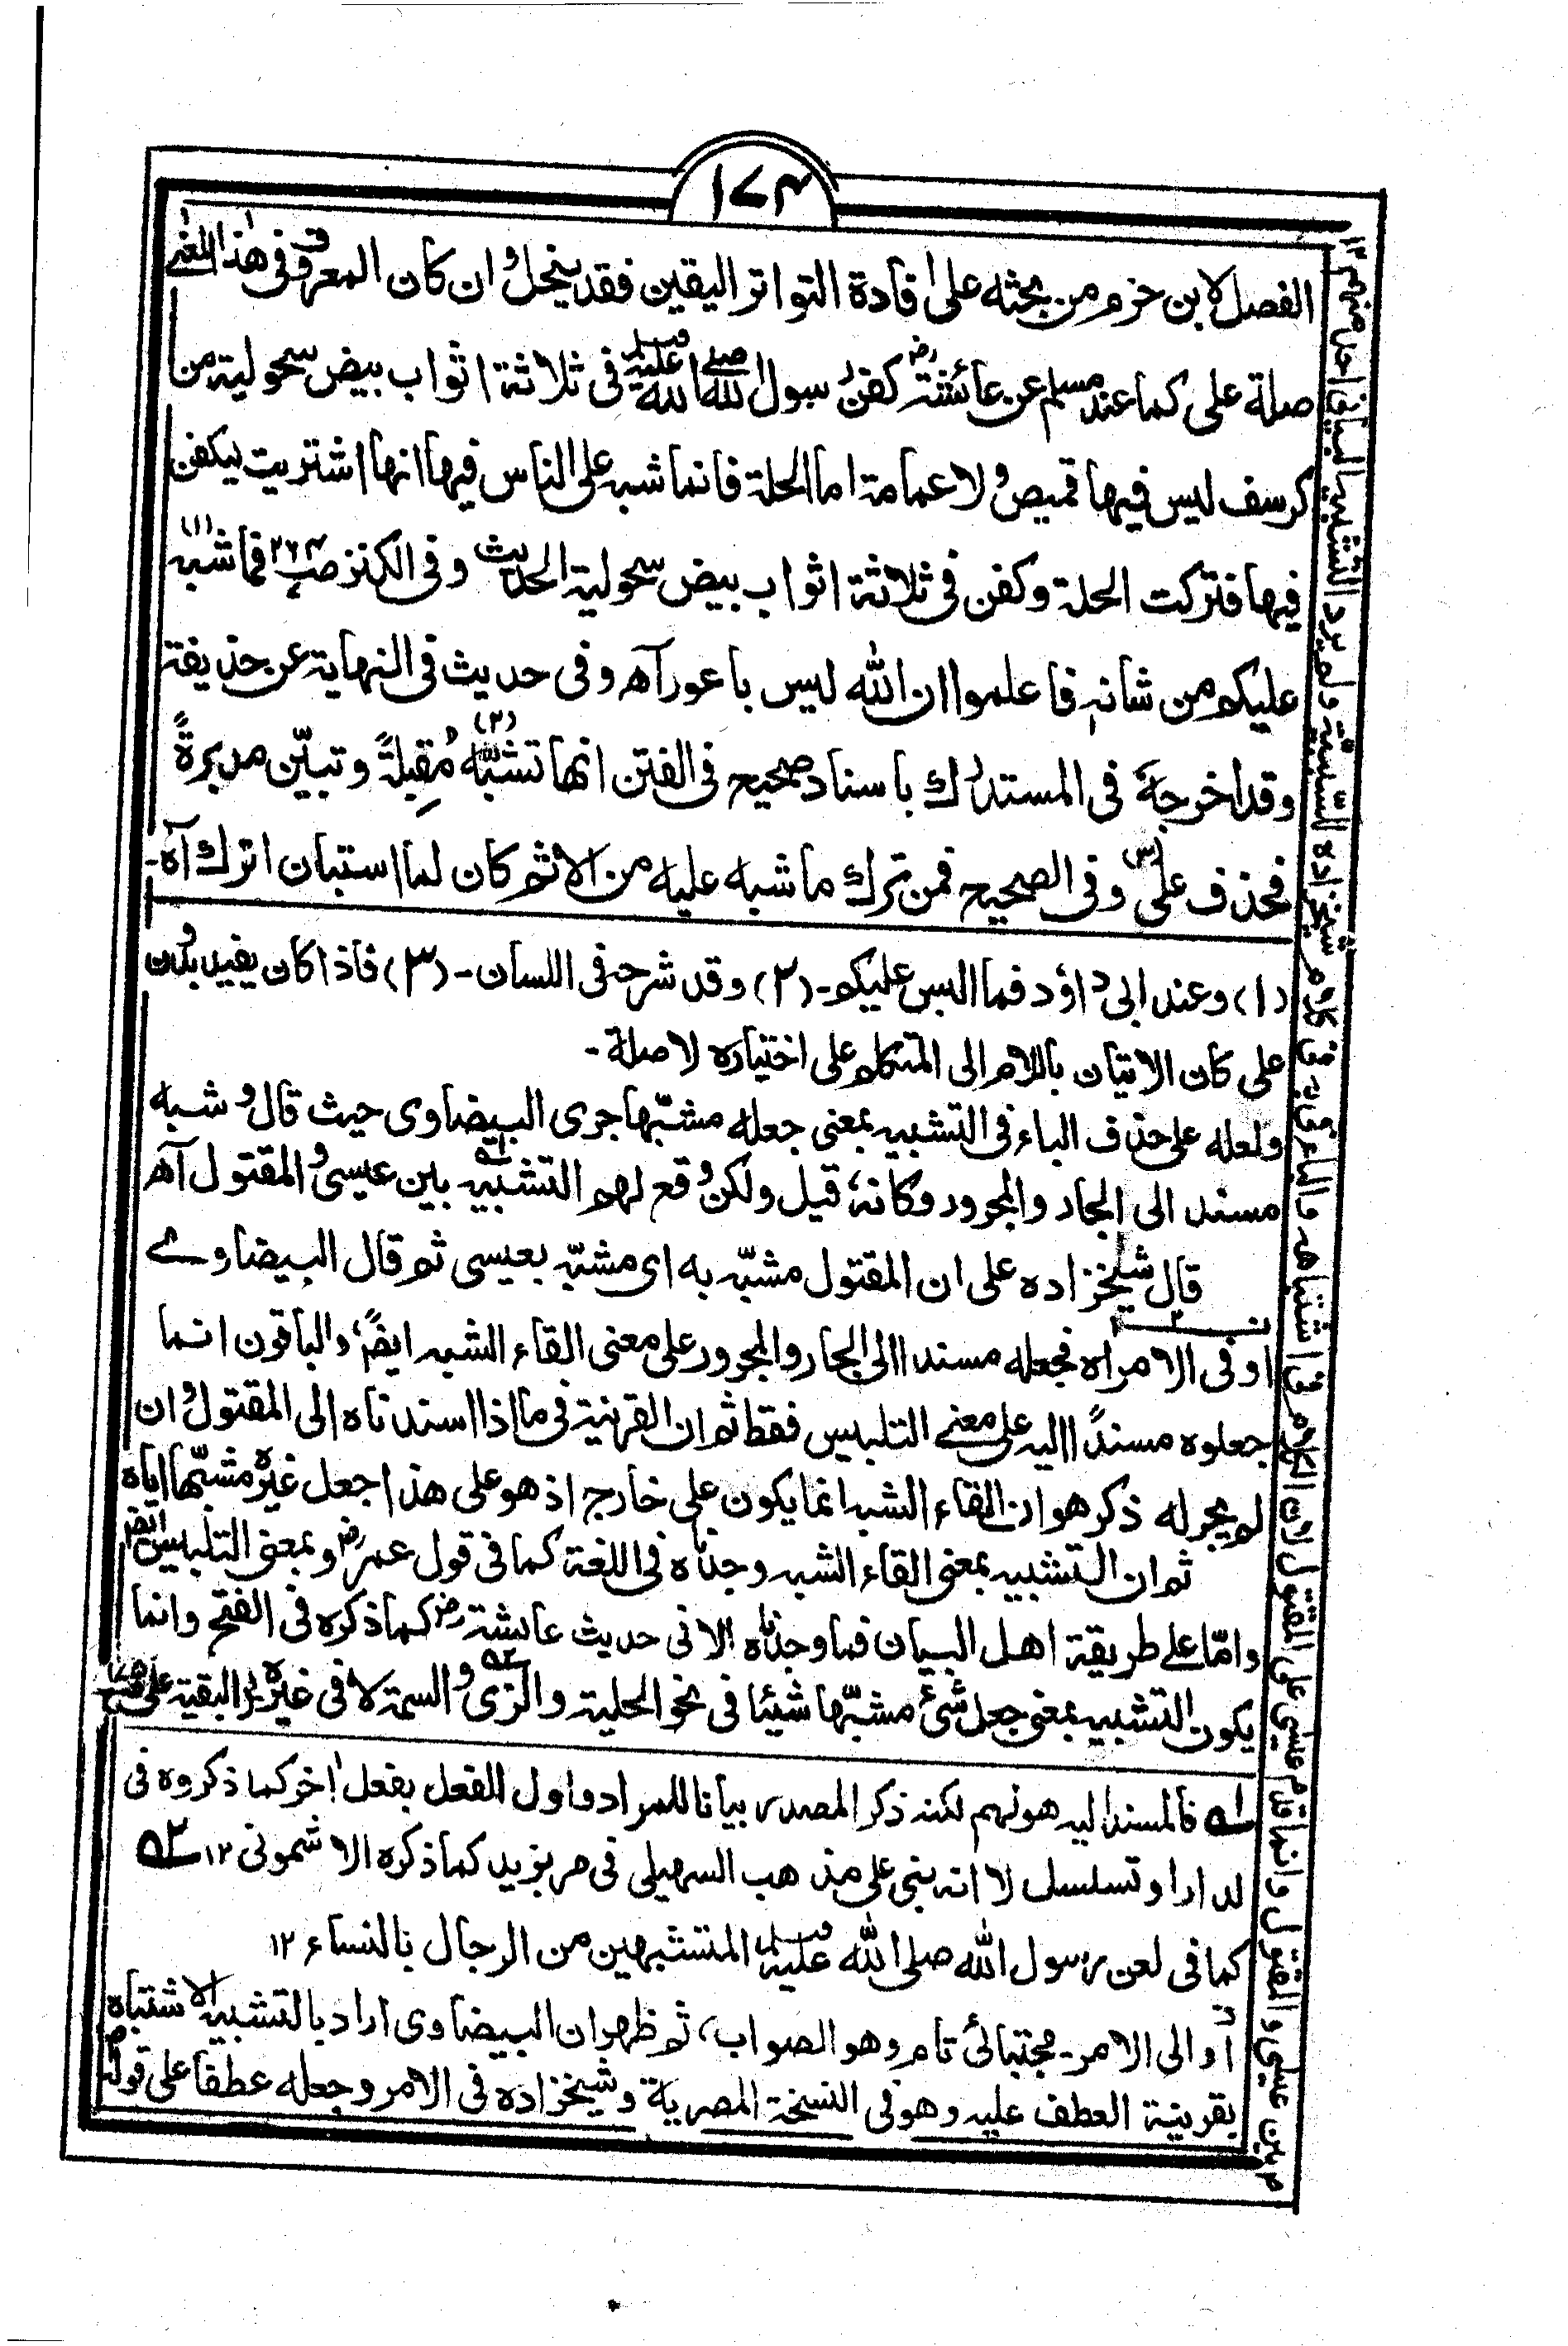 ١٧٤
الفصل لابن حزم من بحثه على افادة التواتر اليقين فقد ينحل و ان كان المعروف فى هذا المعنى
صلة على كما عند مسلم عن عائشة رض كفن رسول الله صلى الله عليه وسلم فى ثلاثة اثواب بيض سحولية من
كرسف ليس فيها قميص ولا عمامة اما الحلة فانما شبه على الناس فيها انها اشتريت ليكفن
فيها فتركت الحلة وكفن فى ثلاثة اثواب بيض سحولية الحديث وفى الكنز ص٢٦٤ فما شبه (١)
عليكم من شانه فاعلموا ان الله ليس باعور آه وفى حديث فى النهاية عن حذيفة
وقد اخرجه فى المستدرك باسناد صحيح فى الفتن انها تشبّه (٢) مُقبلةً وتبيّن مدبرةً
فحذف على (٣) وفى الصحيح فمن ترك ما شبه عليه من الاثم كان لما استبان اترك آه-
(١) وعند ابى داؤد فما البس عليكم- (٢) وقد شرحه فى اللسان- (٣) فاذا كان يفيد بدون
على كان الاتيان باللام الى المتكلم على اختياره لا صلة-
ولعله على حذف الباء فى التشبيه بمعنى جعله مشبّها جرى البيضاوى حيث قال و شبه
مسند الى الجار والمجرور وكانه قيل ولكن وقع لهم التشبيه بين عيسى والمقتول آه
قال شيخزاده على ان المقتول مشبّه به اى مشبّه بعيسى ثم قال البيضاوے
او فى الامر اه فجعله مسندا الى الجار والمجرور على معنى القاء الشبه ايضًا، والباقون انما
جعلوه مسندًا اليه على معنے التلبيس فقط ثم ان القرنية فى ما اذا اسندناه الى المقتول و ان
لم يجر له ذكر هو ان القاء الشبه انما يكون على خارج اذ هو على هذا جعل غيره مشبّها اياه
ثم ان التشبيه بمعنى القاء الشبه وجدناه فى اللغة كما فى قول عمر رض و بمعنى التلبيس ايضا
وامّا على طريقة اهل البيان فما وجدناه الا فى حديث عائشة رض كما ذكره فى الفتح وانما
يكون التشبيه بمعنى جعل شئ مشبّها شيئا فى نحو الحلية والزى و السمة لا فى غيره البقية على
ا٥ فالمسند اليه هو لهم لكنه ذكر المصدر بيانا للمراد و اول الفعل بفعل اخر كما ذكروه فى
لدار او تسلسل لا انه بنى على مذهب السهيلى فى مر بزيد كما ذكره الاشمونى ١٢ ٥٢
كما فى لعن رسول الله صلى الله عليه وسلم المتشبهين من الرجال بالنساء ١٢
او الى الامر- مجتبائى تام وهو الصواب، ثم ظهر ان البيضاوى اراد بالتشبيه الاشتباه
بقرينة العطف عليه وهو فى النسخة المصرية وشيخزاده فى الامر وجعله عطفا على قوله
بين عيسى والمقتول وانما قدم عيسى على المقتول لان الكلام فى اشتباهه والباء كى به فى كلام شيخزاده ولم يرد التشبيه